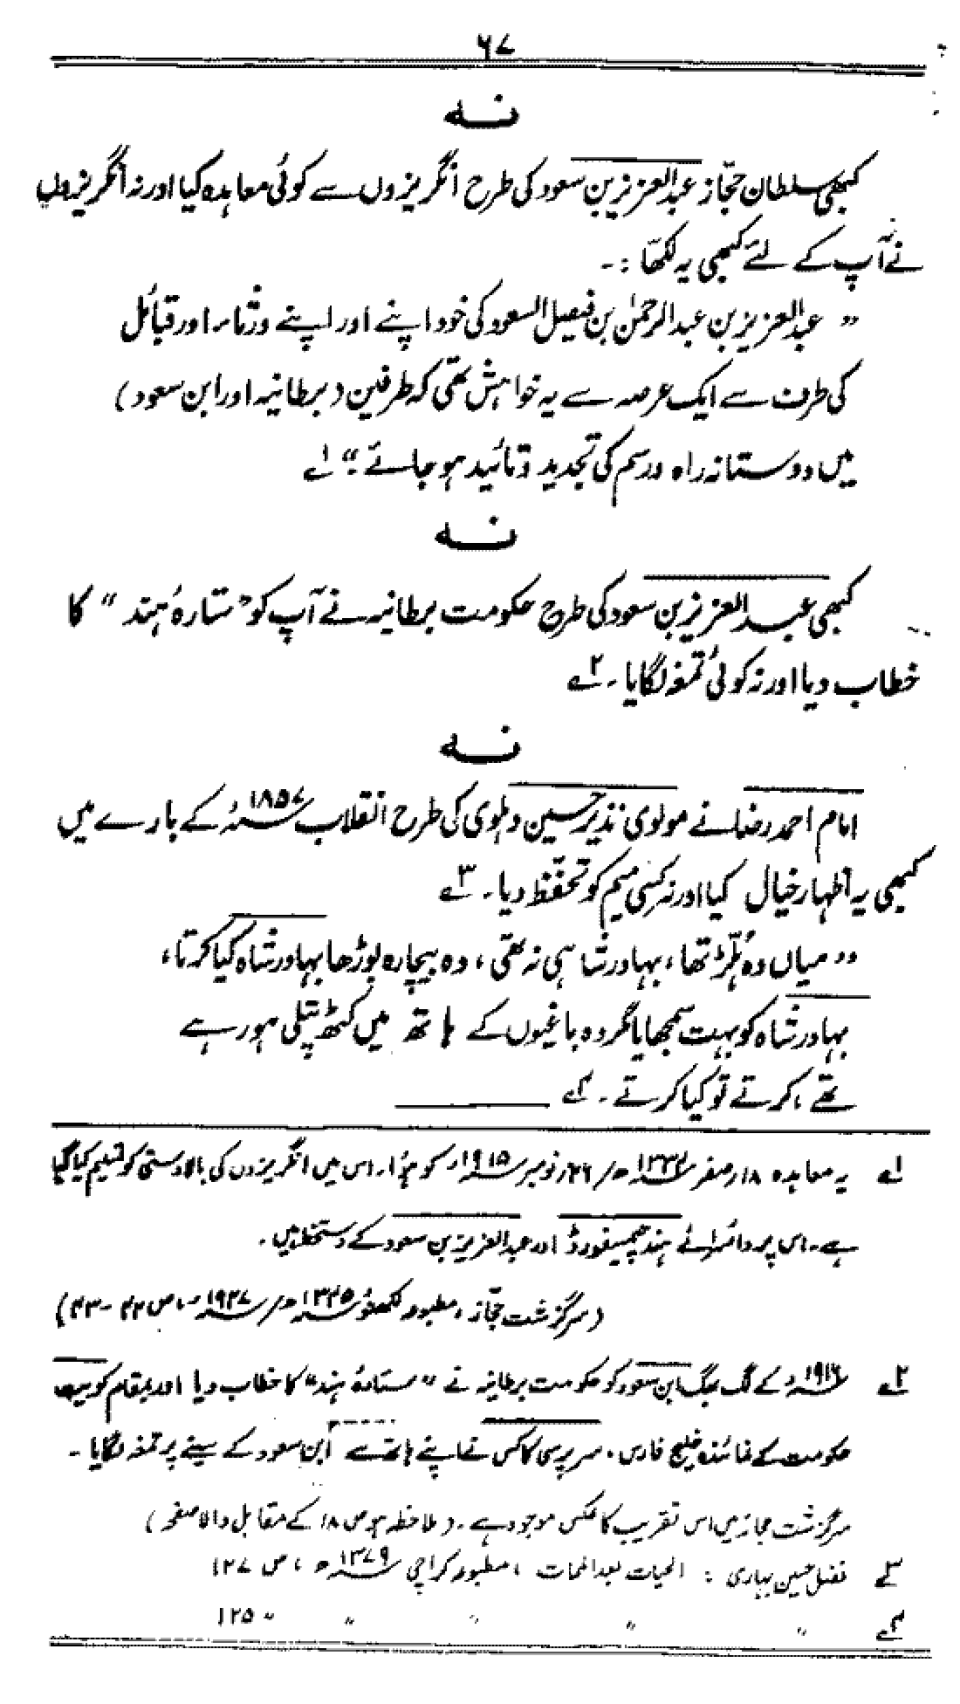 ۶۷
نہ
کبھی سلطان حجّاز عبدالعزیز بن سعود کی طرح انگریزوں سے کوئی معاہدہ کیا اور نہ انگریزوں
نے آپ کے لئے کبھی یہ لکھّا :۔
” عبدالعزیز بن عبدالرحمٰن بن فیصل السعود کی خود اپنے اور اپنے وزراء اور قبائل
کی طرف سے ایک عرصہ سے یہ خواہش تھی کہ طرفین (برطانیہ اور ابن سعود)
میں دوستانہ راہ ورسم کی تجدید و تائید ہو جائے۔“ ۱ے
نہ
کبھی عبدالعزیز بن سعود کی طرح حکومت برطانیہ نے آپ کو ”ستارۂ ہند“ کا
خطاب دیا اور نہ کوئی تمغہ لگایا۔ ۲ے
نہ
امام احمد رضا نے مولوی نذیر حسین دہلوی کی طرح انقلاب ۱۸۵۷ء کے بارے میں
کبھی یہ اظہار خیال کیا اور نہ کسی میم کو تحفّظ دیا۔ ۳ے
” میاں وہ ہلّڑ تھا، بہادر شاہی نہ تھی، وہ بیچارہ بوڑھا بہادر شاہ کیا کرتا،
بہادر شاہ کو بہت سمجھایا مگر وہ باغیوں کے ہاتھ میں کٹھ پتلی ہو رہے
تھے، کرتے تو کیا کرتے۔ ۴ے
۱ے یہ معاہدہ ۱۸؍صفر ۱۳۳۴ھ/۲۶؍نومبر ۱۹۱۵ء کو ہُوا۔ اس میں انگریزوں کی بالادستی کو تسلیم کیا گیا
ہے۔ اس پر وائسرائے ہند چیمسفورڈ اور عبدالعزیز بن سعود کے دستخط ہیں۔
(سرگزشت حجّاز، مطبوعہ لکھنؤ ۱۳۴۵ھ/۱۹۲۷ء، ص ۴۲-۴۳)
۲ے ۱۹۱۶ء کے لگ بھگ ابن سعود کو حکومت برطانیہ نے ”ستارۂ ہند“ کا خطاب دیا اور بمقام کویت
حکومت کے نمائندہ خلیج فارس، سر پرسی کاکس نے اپنے ہاتھ سے ابن سعود کے سینے پر تمغہ لگایا۔
سرگزشت حجاز میں اس تقریب کا عکس موجود ہے۔ (ملاحظہ ہو ص ۱۸ کے مقابل والا صفحہ)
۳ے فضل حسین بہاری : الحیات بعد الممات ، مطبوعہ کراچی ۱۳۷۹ھ، ص ۱۲۷
۴ے ” ” ” ” ” ۱۲۵